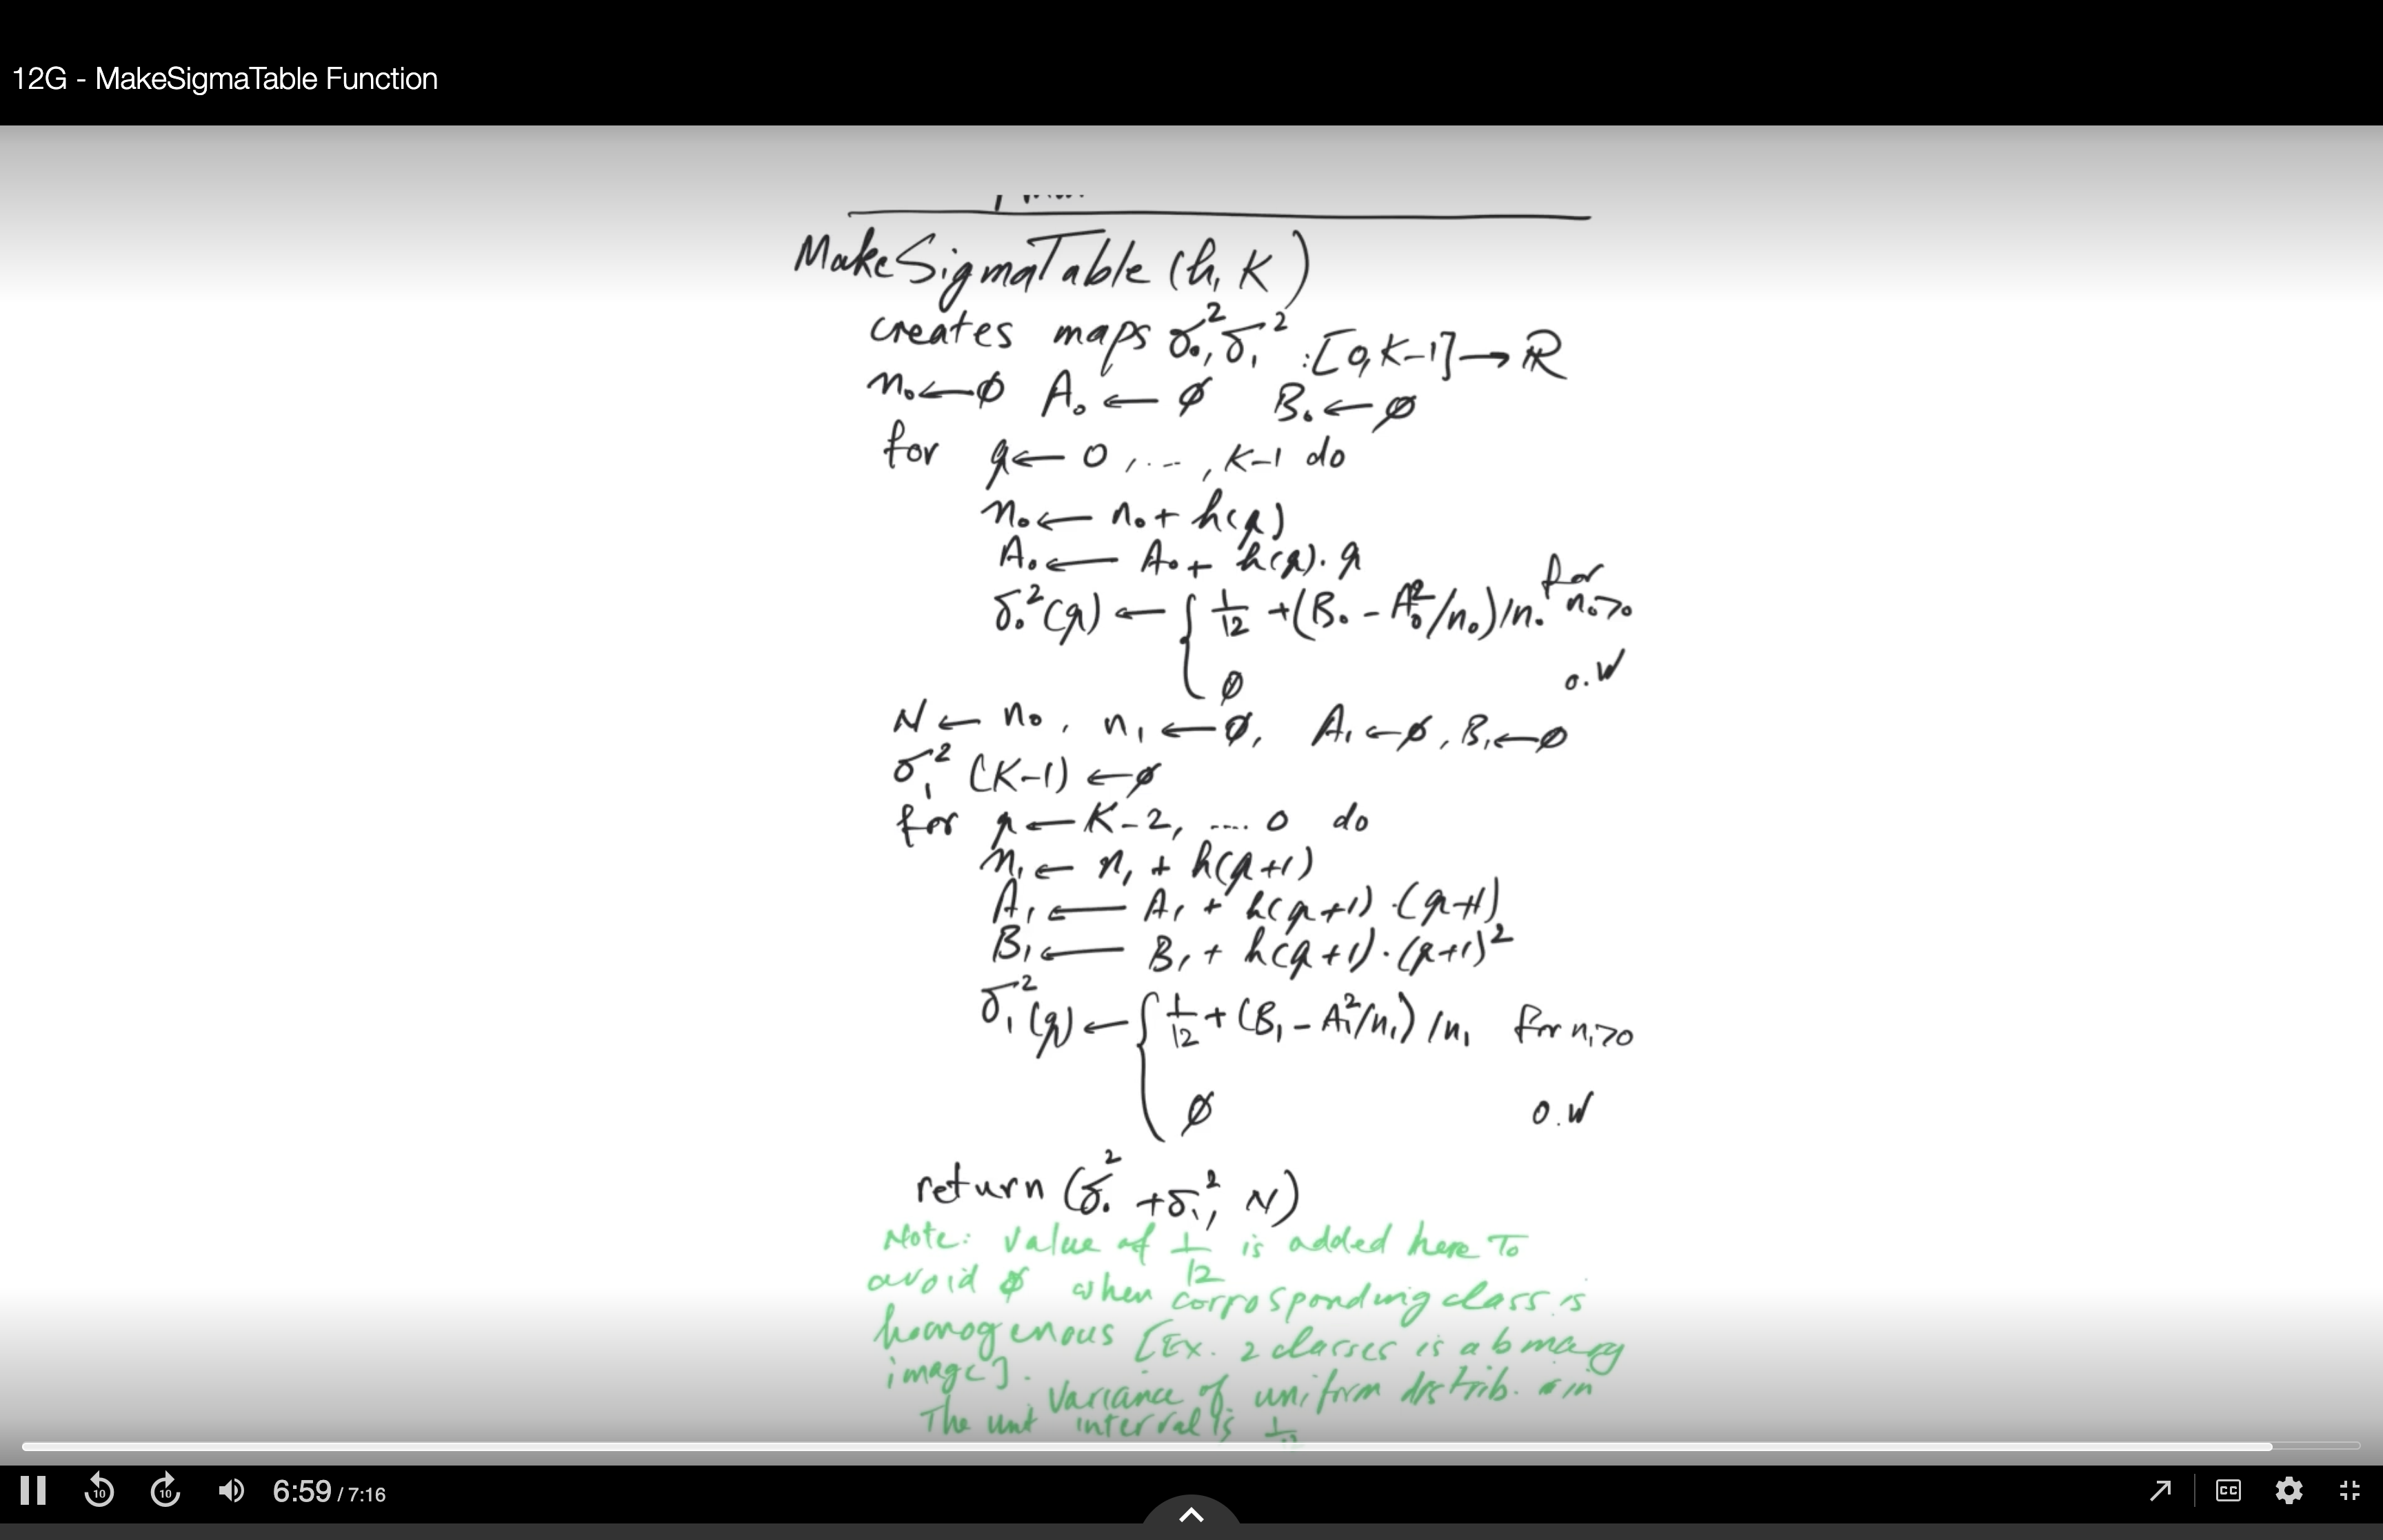 12G - MakeSigmaTable Function
MakeSigmaTable (h, K)
creates maps σ₀², σ₁² : [0, K-1] → ℝ
n₀ ← ∅ A₀ ← ∅ B₀ ← ∅
for q ← 0, ..., K-1 do
n₀ ← n₀ + h(q)
A₀ ← A₀ + h(q) · q
σ₀²(q) ← { 1/12 + (B₀ - A₀²/n₀)/n₀ for n₀>0
∅ o.w
N ← n₀, n₁ ← ∅, A₁ ← ∅, B₁ ← ∅
σ₁² (K-1) ← ∅
for q ← K-2, .... 0 do
n₁ ← n₁ + h(q+1)
A₁ ← A₁ + h(q+1) · (q+1)
B₁ ← B₁ + h(q+1) · (q+1)²
σ₁²(q) ← { 1/12 + (B₁ - A₁²/n₁)/n₁ for n₁>0
∅ o.w
return (σ₀² + σ₁², N)
Note: value of 1/12 is added here To
avoid ∅ when corrosponding class is
homogenous [Ex. 2 classes is a binary
image].
Variance of uniform distrib. in
The unit interval is 1/12
10 10 6:59 / 7:16 CC